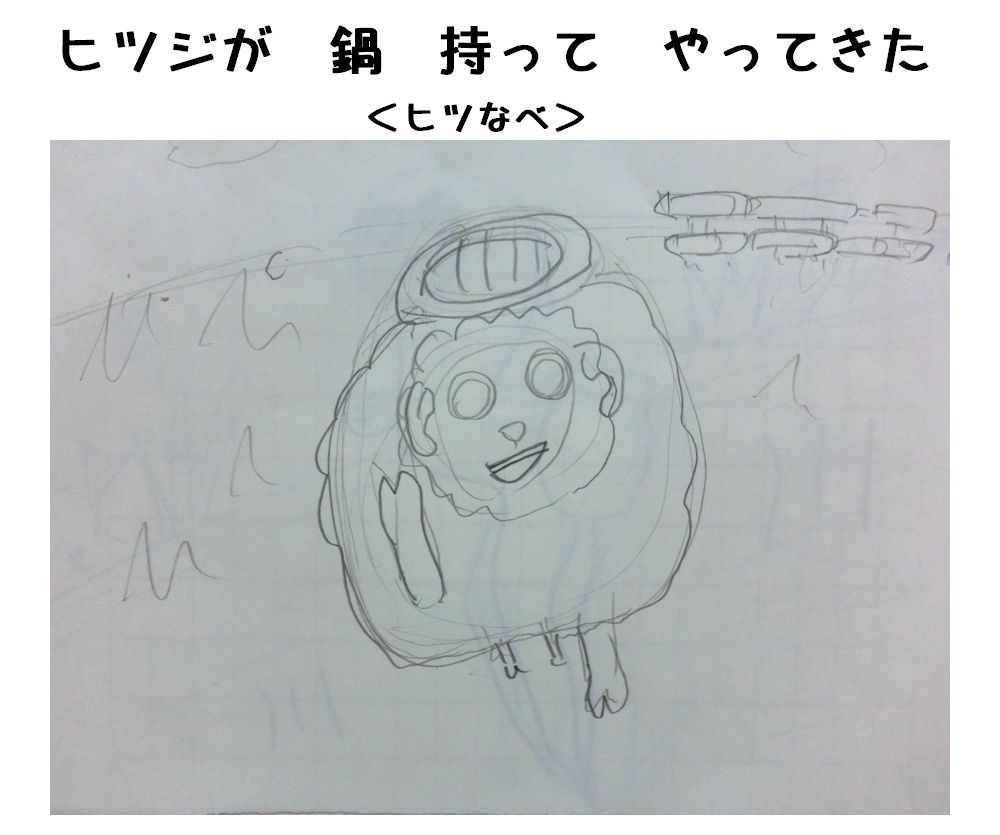 ヒツジが 鍋 持って やってきた
<ヒツなべ>